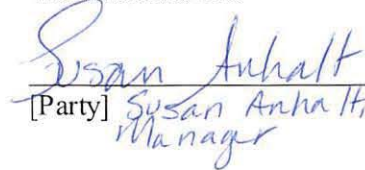 Susan Anhalt
[Party] Susan Anhalt,
Manager